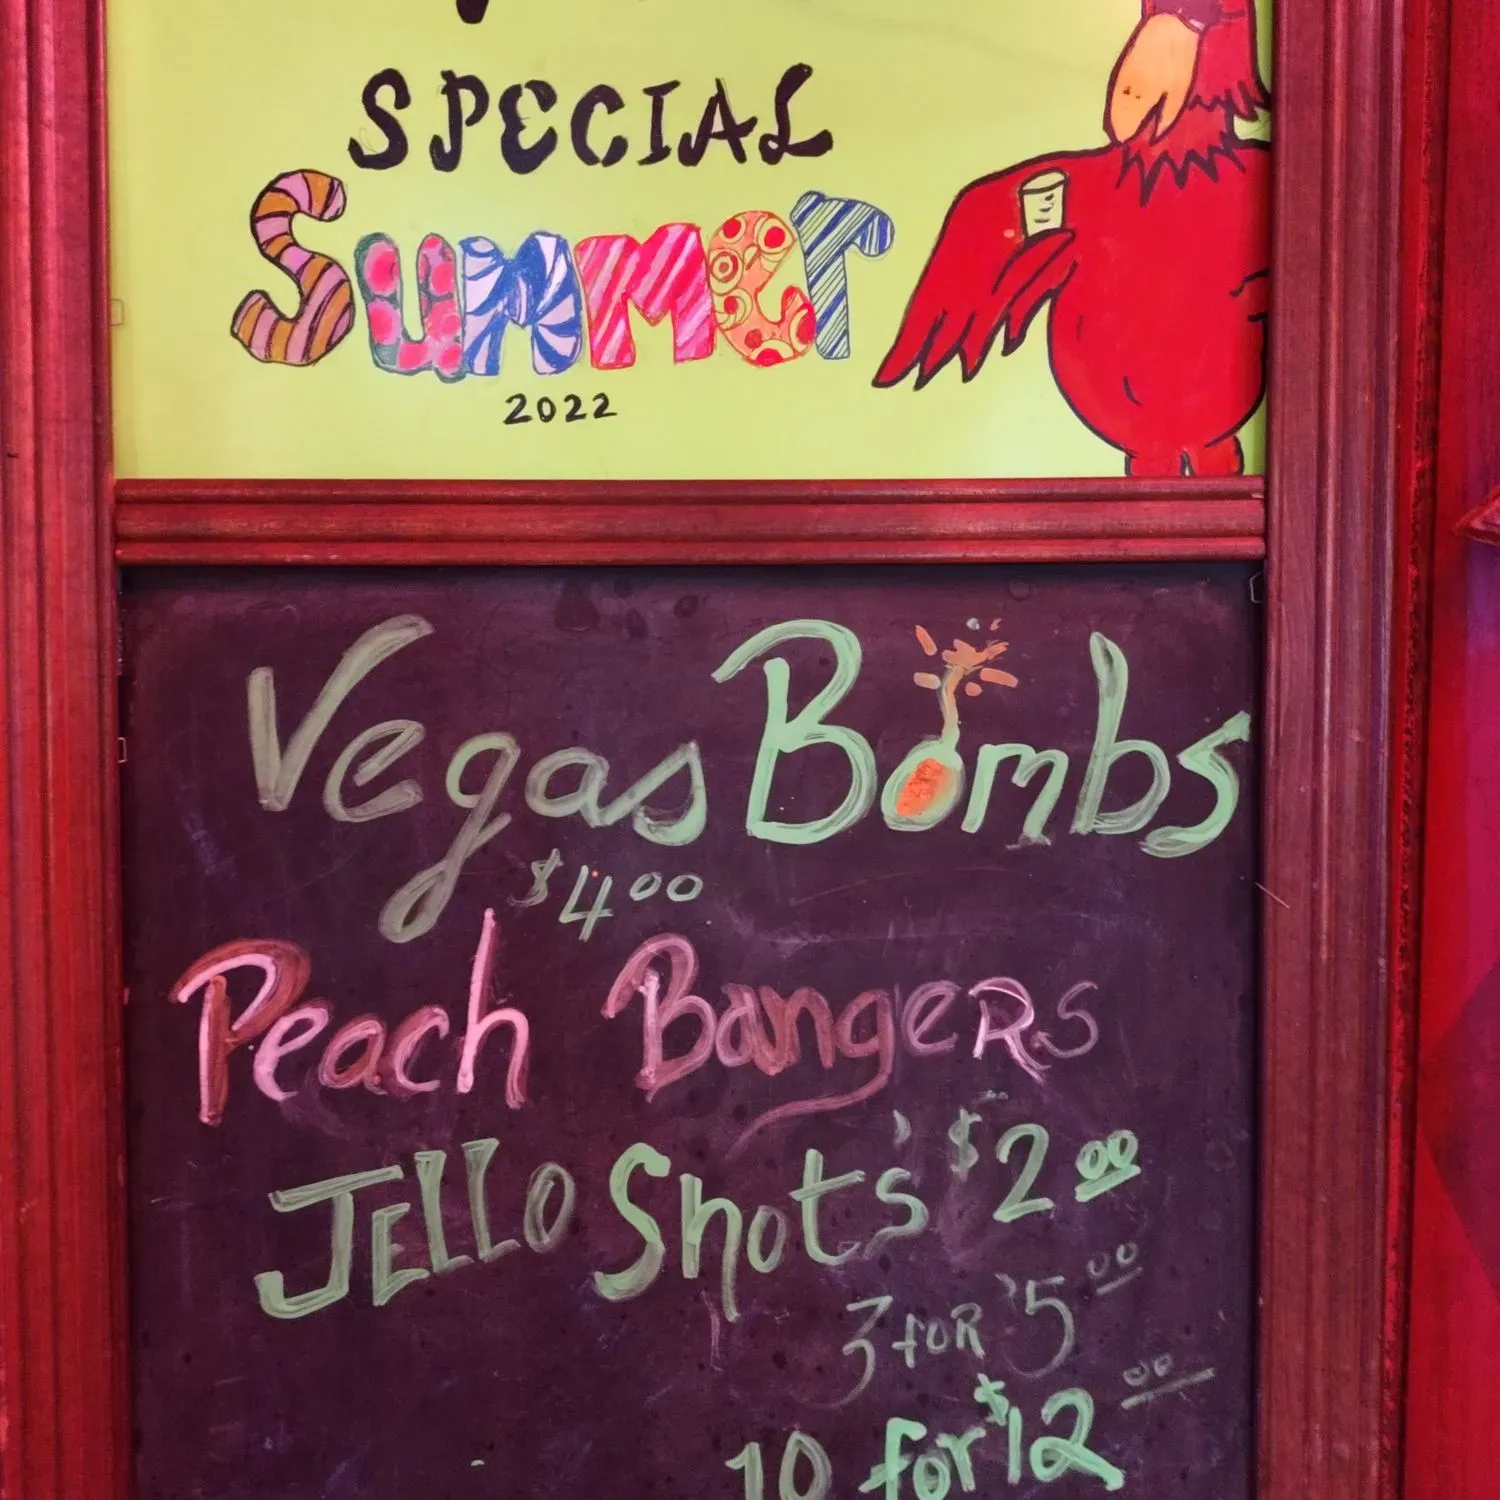 SPECIAL
Summer
2022
Vegas Bombs
$4.00
Peach BangeRs
JELLO Shot's $2.00
3 foR $5.00
10 for $12.00